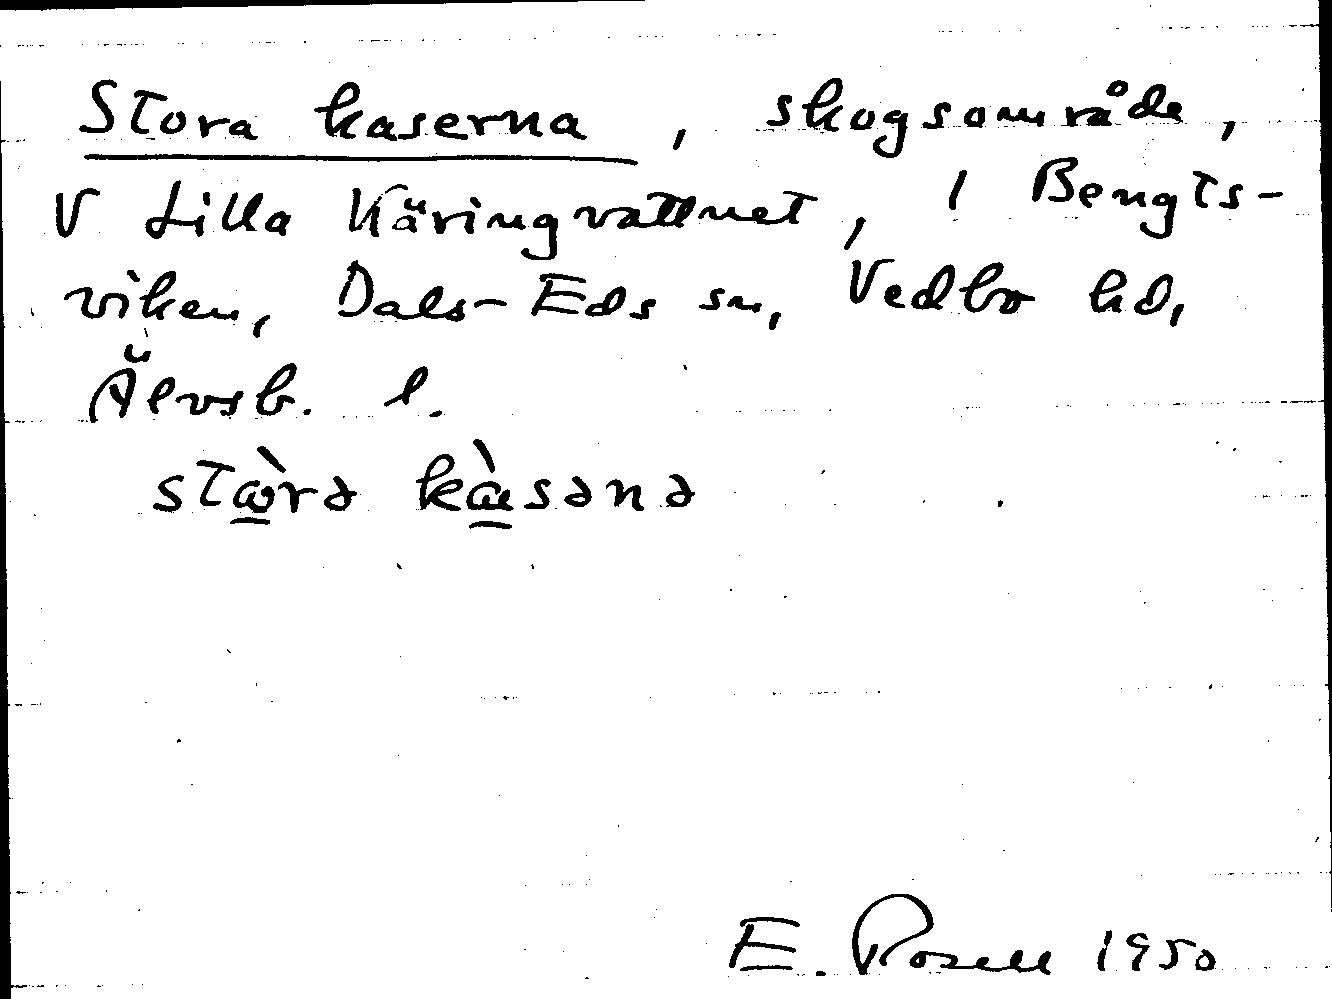 Stora kaserna, skogsområde,
V Lilla Käringvattnet, 1 Bengts-
viken, Dals-Eds sn, Vedbo hd,
Älvsb. l.
E. Rosell 1950